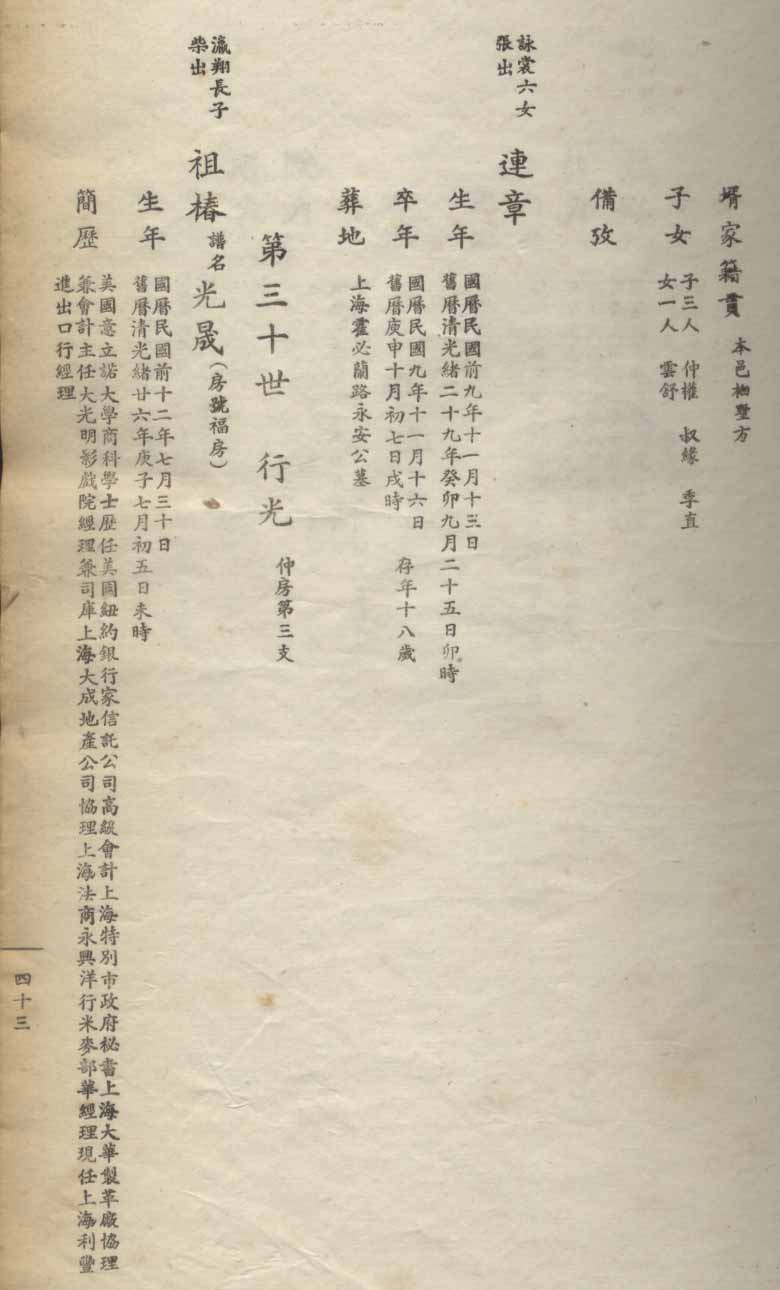 壻家籍貫　本邑柏墅方
子女　子三人　仲權　叔緣　季直
女一人　雲舒
備攷
詠裳六女
張出
連章
生年　國曆民國前九年十一月十三日
舊曆清光緒二十九年癸卯九月二十五日卯時
卒年　國曆民國九年十一月十六日
舊曆庚申十月初七日戌時　存年十八歲
葬地　上海霍必蘭路永安公墓
第三十世　行光　仲房第三支
瀛翔長子
柴出
祖椿　譜名光晟（房號福房）
生年　國曆民國前十二年七月三十日
舊曆清光緒廿六年庚子七月初五日未時
簡歷　美國意立諾大學商科學士歷任美國紐約銀行家信託公司高級會計上海特別市政府秘書上海大華製革廠協理
兼會計主任大光明影戲院經理兼司庫上海大成地產公司協理上海法商永興洋行米麥部華經理現任上海利豐
進出口行經理
四十三